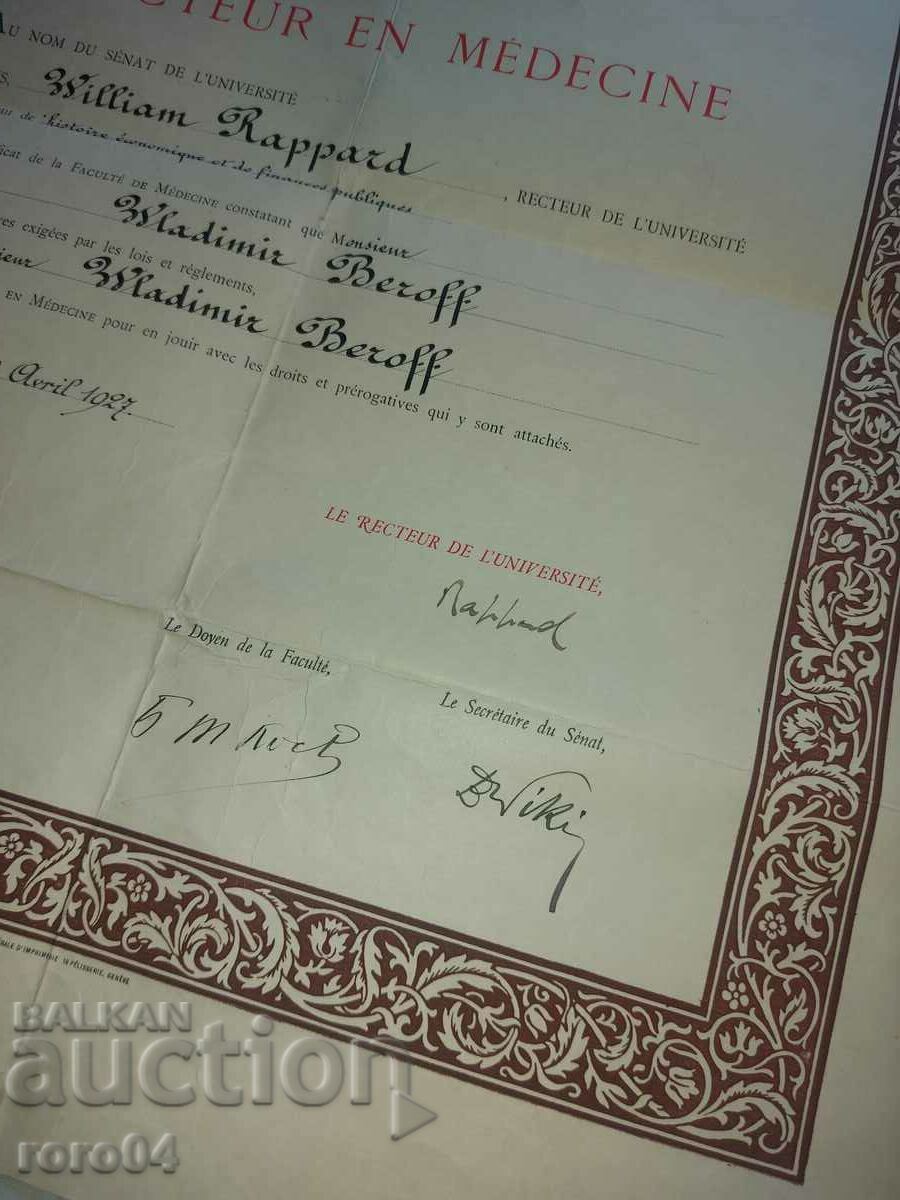 CTEUR EN MÉDECINE
AU NOM DU SÉNAT DE L'UNIVERSITÉ
William Rappard, RECTEUR DE L'UNIVERSITÉ
de l'histoire économique et de finances publiques
icat de la FACULTÉ DE MÉDECINE constatant que Monsieur
Wladimir Beroff
res exigées par les lois et règlements,
ieur Wladimir Beroff
EN MÉDECINE pour en jouir avec les droits et prérogatives qui y sont attachés.
Avril 1927.
LE RECTEUR DE L'UNIVERSITÉ,
Rappard
Le Doyen de la Faculté,
Le Secrétaire du Sénat,
RALE D'IMPRIMERIE 18 PÉLISSERIE, GENÈVE
BALKAN
auction
roro04